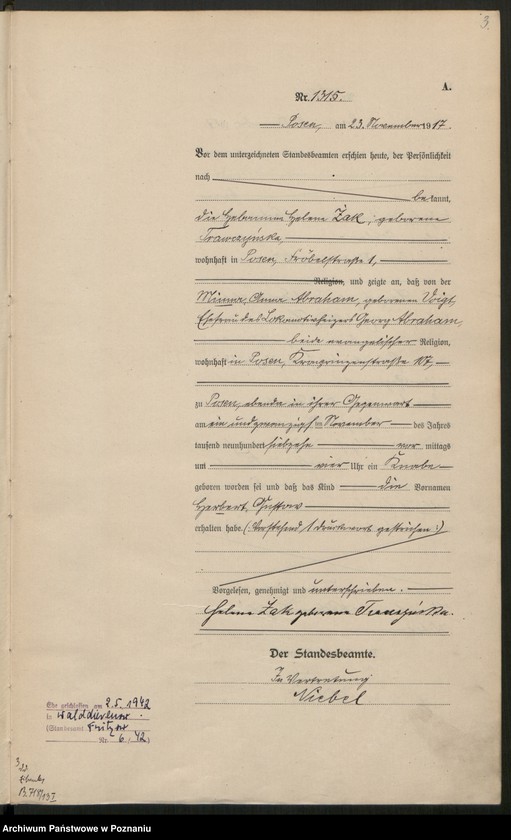 3.
A.
Nr. 1315.
Posen, am 23. November 1917.
Vor dem unterzeichneten Standesbeamten erschien heute, der Persönlichkeit
nach
bekannt,
die Hebamme Helene Żak, geborene
Trawczyńska,
wohnhaft in Posen, Fröbelstraße 1,
Religion, und zeigte an, daß von der
Minna, Anna Abraham, geborenen Voigt,
Ehefrau des Lokomotivheizers Georg Abraham,
beide evangelischer Religion,
wohnhaft in Posen, Kronprinzenstraße 107,
zu Posen, ebenda in ihrer Gegenwart
am ein und zwanzigsten November des Jahres
tausend neunhundert siebzehn vor mittags
um vier Uhr ein Knabe
geboren worden sei und daß das Kind die Vornamen
Herbert Gustav
erhalten habe. (Vorstehend 1 Druckwort gestrichen.)
Vorgelesen, genehmigt und unterschrieben.
Helene Żak geborene Trawczyńska.
Der Standesbeamte.
In Vertretung
Niebel
Ehe geschlossen am 2.5.1942
in Walddievenow.
(Standesamt Fritzow
Nr. 6/42)
Archiwum Państwowe w Poznaniu